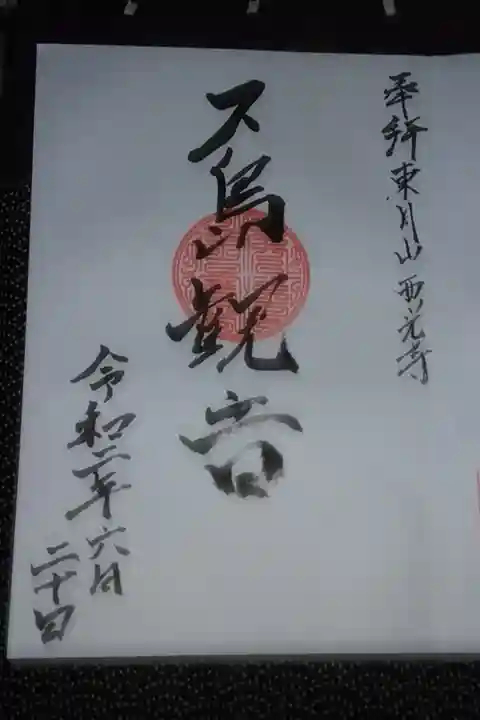 奉拝東月山西光寺
久島観音
令和二年六月
二十日